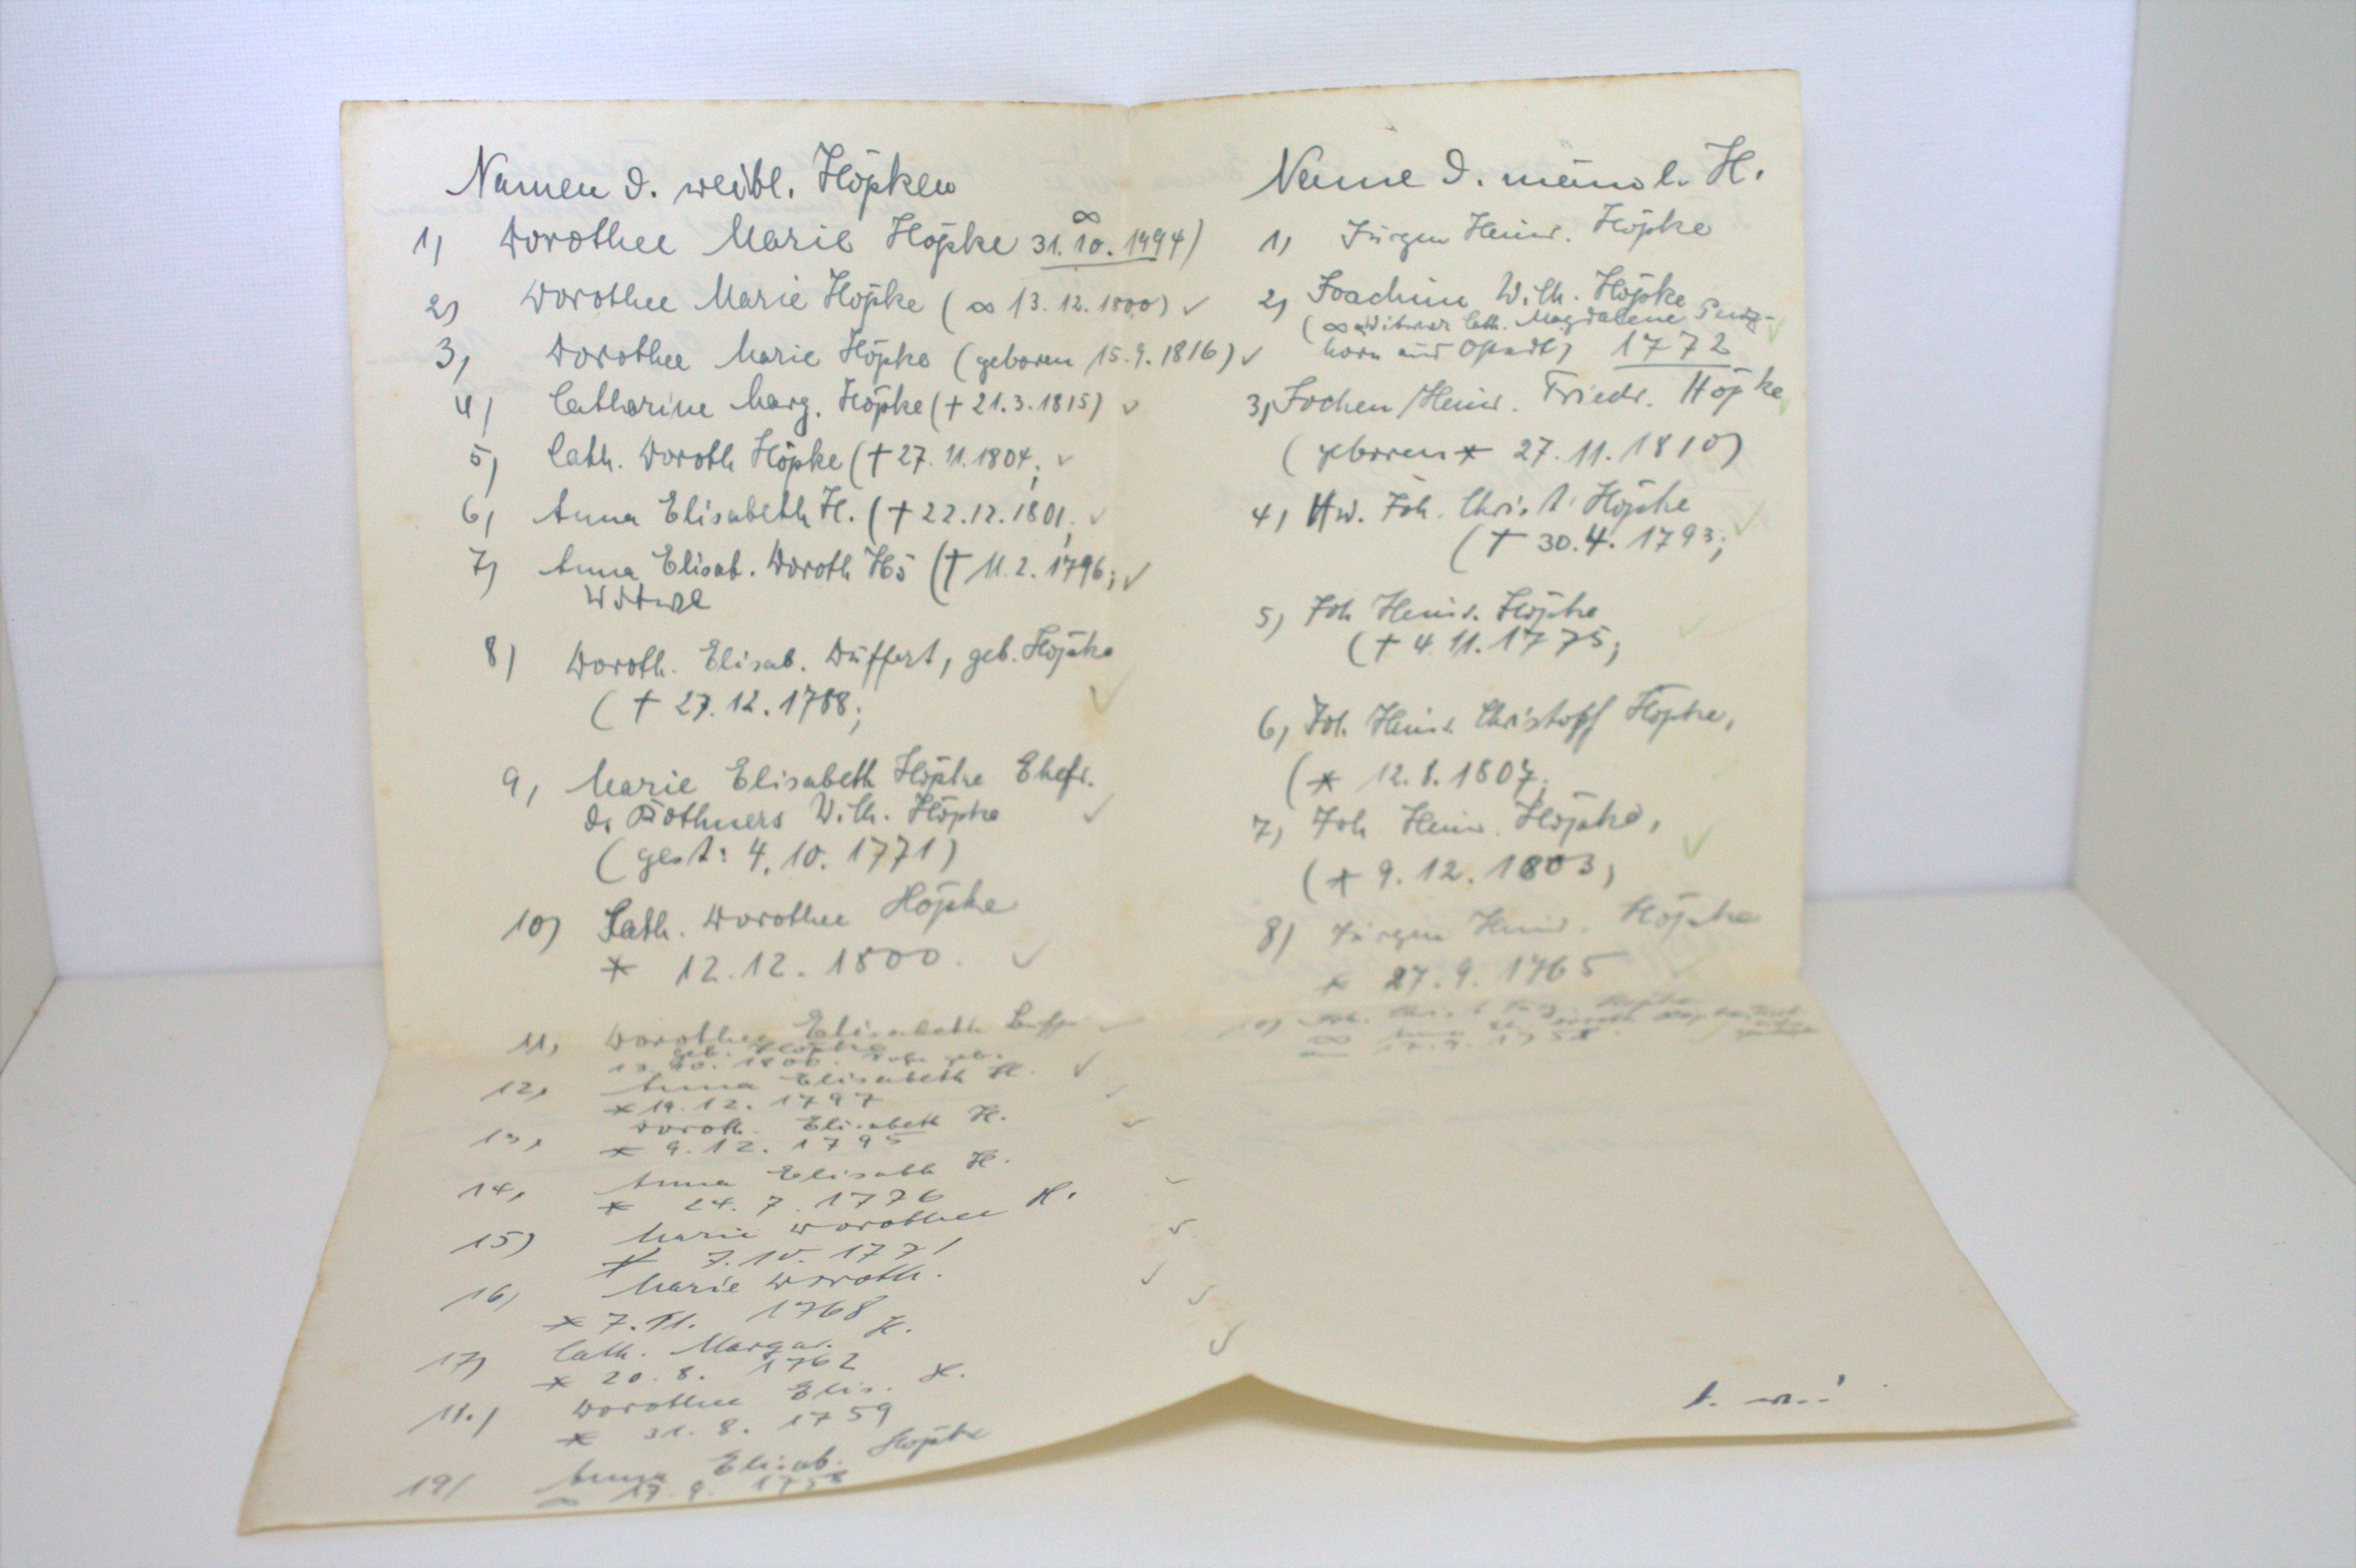 Namen d. weibl. Höpken
1) Dorothee Marie Höpke ∞ 31. 10. 1794)
2) Dorothee Marie Höpke (∞ 13. 12. 1800) ✓
3, Dorothee Marie Höpke (geboren 15. 9. 1816) ✓
4) Catharine Marg. Höpke († 21. 3. 1815) ✓
5) Cath. Doroth Höpke († 27. 11. 1804; ✓
6, Anna Elisabeth H. († 22. 12. 1801; ✓
7) Anna Elisab. Doroth Hö († 11. 2. 1796; ✓
Witwe
8) Doroth. Elisab. Düffert, geb. Höpke
(† 27. 12. 1788; ✓
9, Marie Elisabeth Höpke Ehefr.
d. Köthners Wilh. Höpke ✓
(gest: 4. 10. 1771)
10) Cath. Dorothee Höpke
* 12. 12. 1800. ✓
11, Dorothee Elisabeth
geb. Höpke
12, Anna Elisabeth H. ✓
* 19. 12. 1797
13, Doroth. Elisabeth H.
* 9. 12. 1795
14, Anna Elisabth H.
* 24. 7. 1776
15) Marie Dorothee H.
* 7. 10. 1771
16, Marie Doroth.
* 7. 11. 1768 H.
17) Cath. Margar.
* 20. 8. 1762 H.
18.) Dorothee Elis.
* 31. 8. 1759
19) Anna Elisab. Höpke
∞ 17. 9. 1758
Name d. männl. H.
1) Jürgen Heinr. Höpke
2) Joachim Wilh. Höpke
(∞ Witwer Cath. Magdalene
1772
3, Jochen/Heinr. Friedr. Höpke
(geboren * 27. 11. 1810)
4) Hw. Joh. Christ. Höpke
(† 30. 4. 1793; ✓
5) Joh Heinr. Höpke
(† 4. 11. 1775; ✓
6, Joh. Heinr. Christoff Höpke,
(* 12. 8. 1807;
7, Joh Heinr. Höpke, ✓
(* 9. 12. 1803)
8) Jürgen Heinr. Höpke
* 27. 9. 1765 ✓